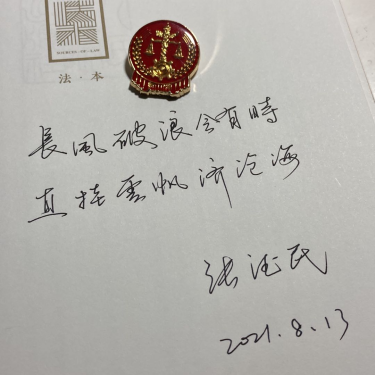 SOURCES OF LAW
法·本
長風破浪会有時
直挂雲帆济沧海
张德民
2021.8.13